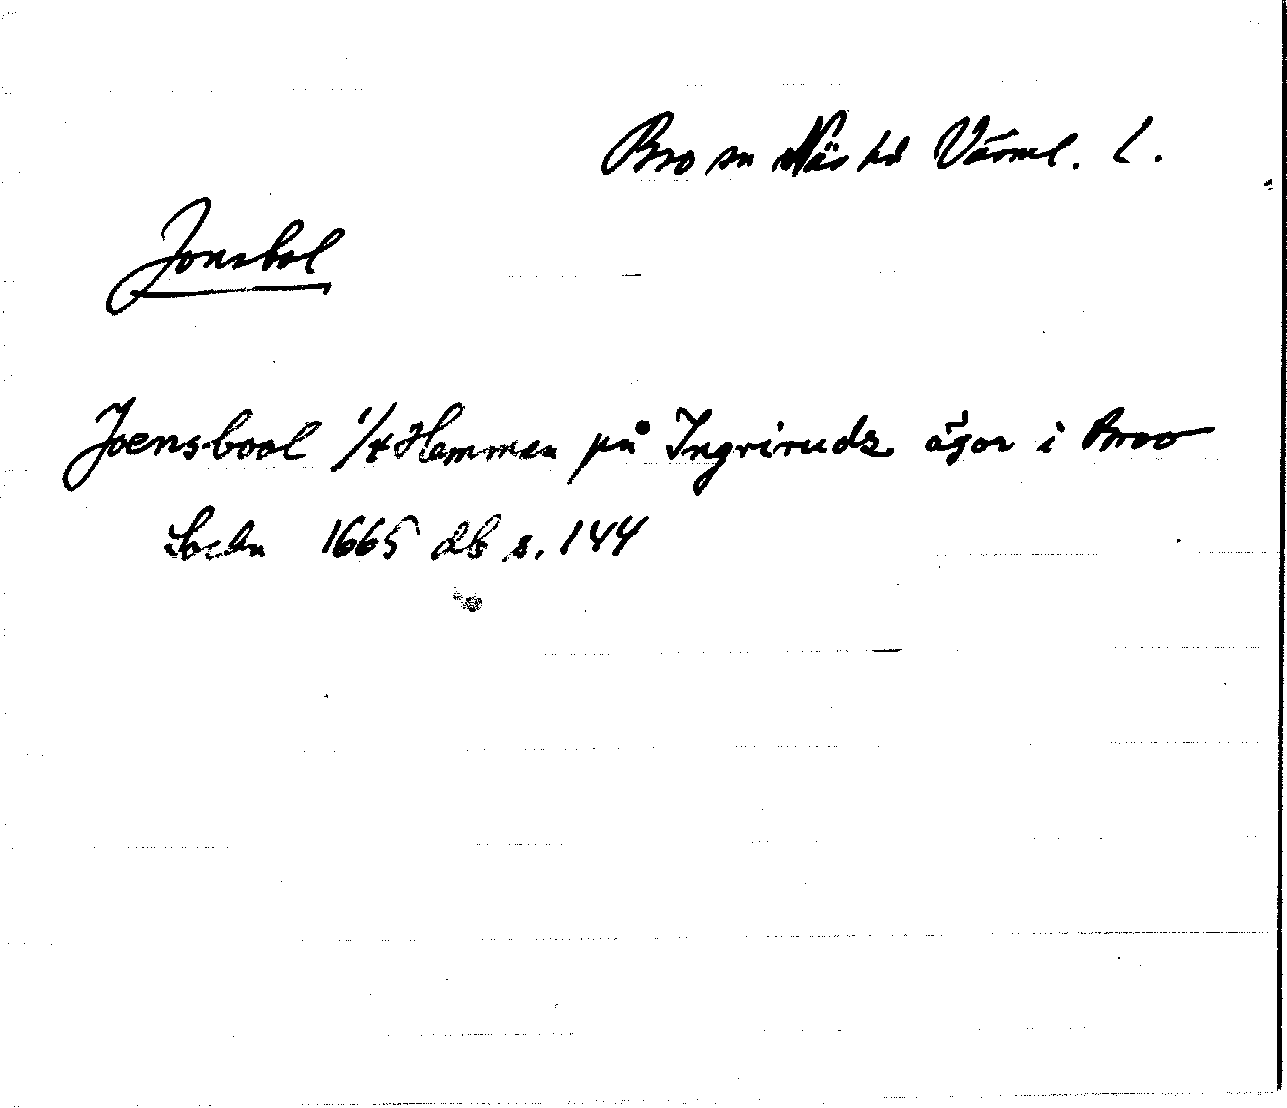 Bro sn Näs hd Värml. L.
Jonsbol
Joensbool 1/4 Hemman på Ingriruds ägor i Broo
Sockn 1665 db s. 144